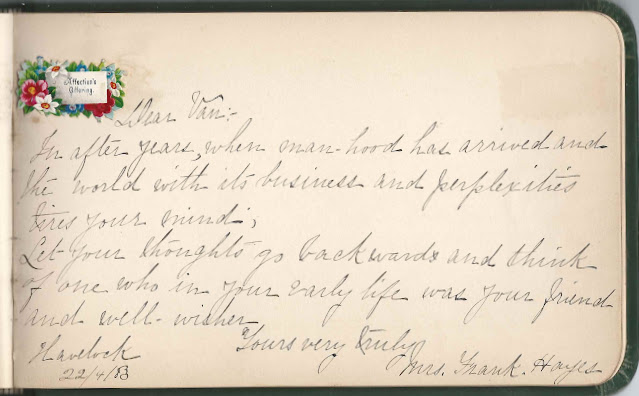 Affection's
Offering
Dear Van:-
In after years, when man-hood has arrived and
the world with its business and perplexities
tires your mind,
Let your thoughts go backwards and think
of one who in your early life was your friend
and well-wisher
Yours very truly
Havelock
Mrs. Frank. Hayes
22/4/83